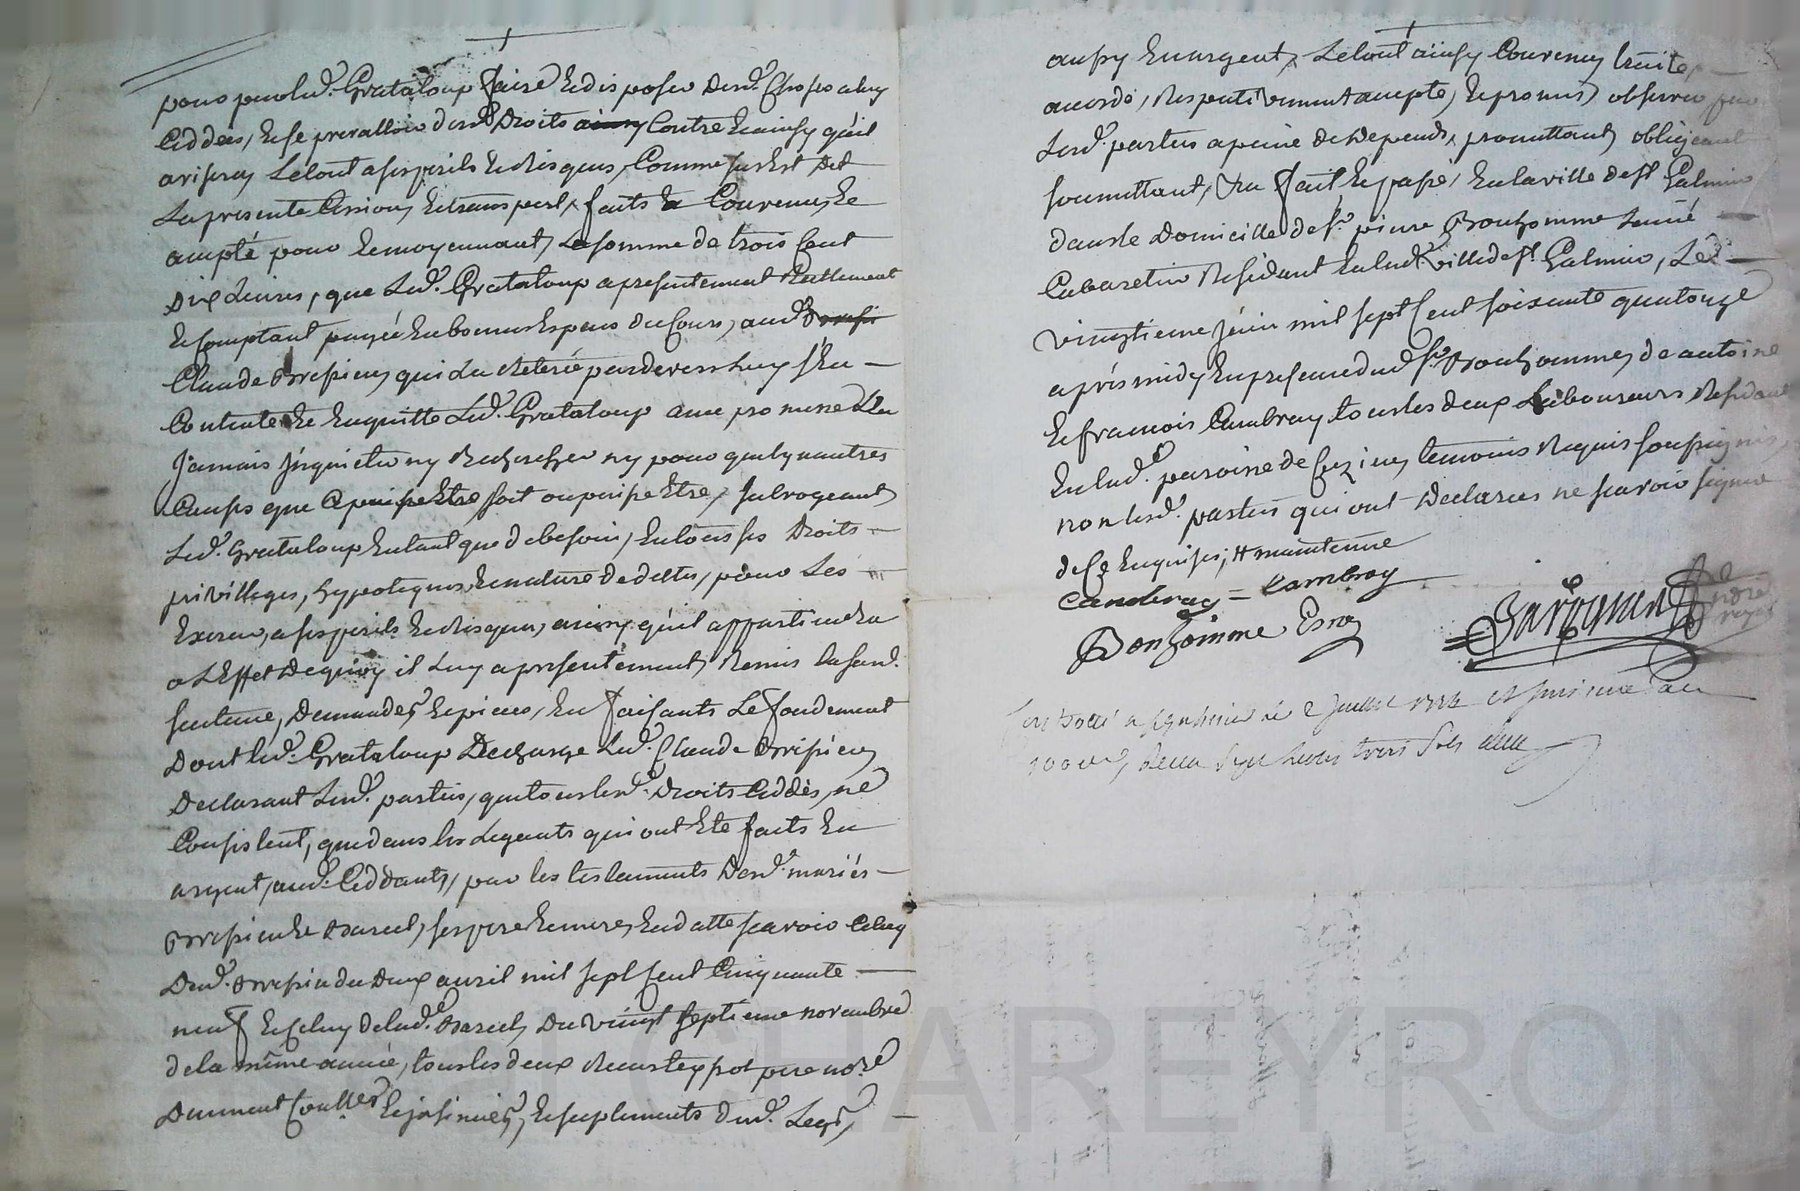 pour par led. Grataloup faire et disposer desd. Choses a luy
Ceddées, et se prevalloir desd. Droits ainsy Contre et ainsy qu'il
avisera, Le tout a ses perils et risques, Comme sus Est dit
La presente Cession, et transport, faits Convenus, et
accepté pour et moyennant, La somme de trois Cent
Dix Livres, que Led. Grataloup a presentement reellement
et Comptant payée en bonnes Especes du Cours, aud.
Claude Crespieu, qui L'a retirée pardevers Luy, s'en
Contente et En quitte Led. Grataloup avec promesse de n'en
Jamais Jnquietter ny Rechercher ny pour quelqu'autres
Causes que Ce puisse Etre, soit ou puisse Etre, Subrogeant
Led. Grataloup En tant que de besoin, En tous ses Droits
privilleges, hypoteques, et nature de dettes, pour Les
Exercer, a ses perils et risques, ainsy qu'il appartiendra
a L'Effet de quoy il Luy a presentement, Remis lesd.
sentence, Demandes et pieces, En faisants Le fondement
Dont led. Grataloup Decharge Led. Claude Crespieu,
Declarant Lesd. parties, que tous lesd. Droits Ceddés, ne
Consistent, que dans les Legats qui ont Eté faits En
argent, aud. Ceddant, par les testaments Desd. mariés
Crespieu et Marcel, ses pere et mere, En datte scavoir Celuy
Dud. Crespieu du Deux avril mil sept Cent Cinquante
neuf et Celuy de lad. Marcel, Du vingt septieme novembre
de la même année, tous les deux Receus pere no.re
Duement Conllés et jnsinués, et suplements dud. Legs,
aussy En argent, Le tout ainsy Convenu, traité,
acordé, Respectivement accepté, et promis observer par
Lesd. parties a peine de Depends, promettant, obligeant
soumettant, &a fait et passé, En la ville de St Galmier
dans le Domicille de Sr. pierre Bonhomme
Cabaretier Residant En lad. ville de St Galmier, Le
vingtieme juin mil sept Cent soixante quatorze
après midy En presence dud. Sr. Bonhomme, de antoine
et francois Cambray tous les deux Laboureurs Residant
En lad. paroisse de Cuzieu, temoins Requis soussignés,
non lesd. parties qui ont Declarées ne scavoir signer
de Ce Enquises,
Cambray = Cambray
Bonhomme
Controllé a St Galmier le 2 juillet 1774
Receu sept livres trois sols
CHAREYRON